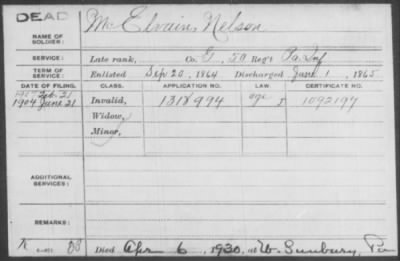 DEAD
NAME OF SOLDIER: McElvain, Nelson
SERVICE: Late rank, Co. G, 50 Reg't Pa. Inf
TERM OF SERVICE: Enlisted Sep 20, 1864 Discharged June 1, 1865
DATE OF FILING. CLASS. APPLICATION NO. LAW. CERTIFICATE NO.
Feb. 21
1904 June 21 Invalid, 1318994 age 1092197
Widow,
Minor,
ADDITIONAL SERVICES:
REMARKS:
Died Apr 6, 1930, at W. Sunbury, Pa